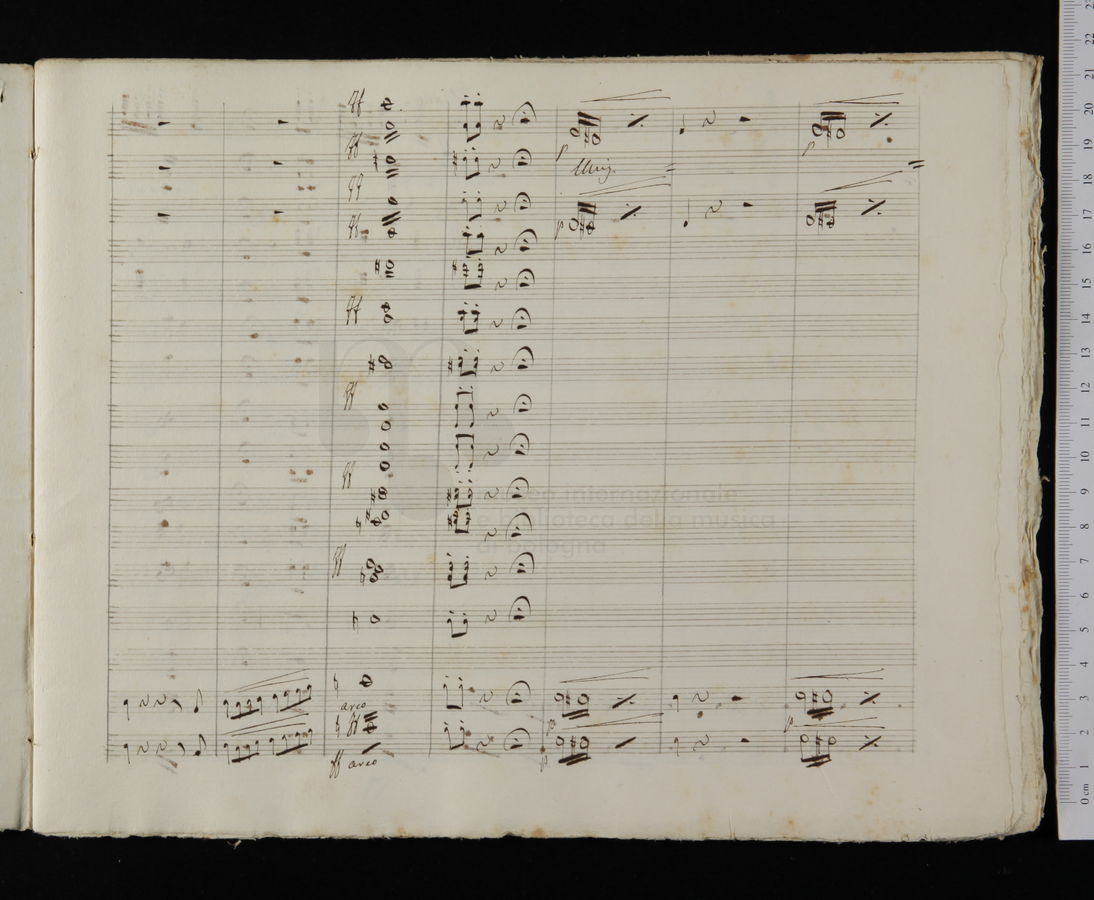 ff
ff
p
p
Unis.
ff
ff
p
ff
ff
ff
museo internazionale
e biblioteca della musica
di bologna
ff
arco
ff
p
p
ff arco
p
0 cm 1 2 3 4 5 6 7 8 9 10 11 12 13 14 15 16 17 18 19 20 21 22